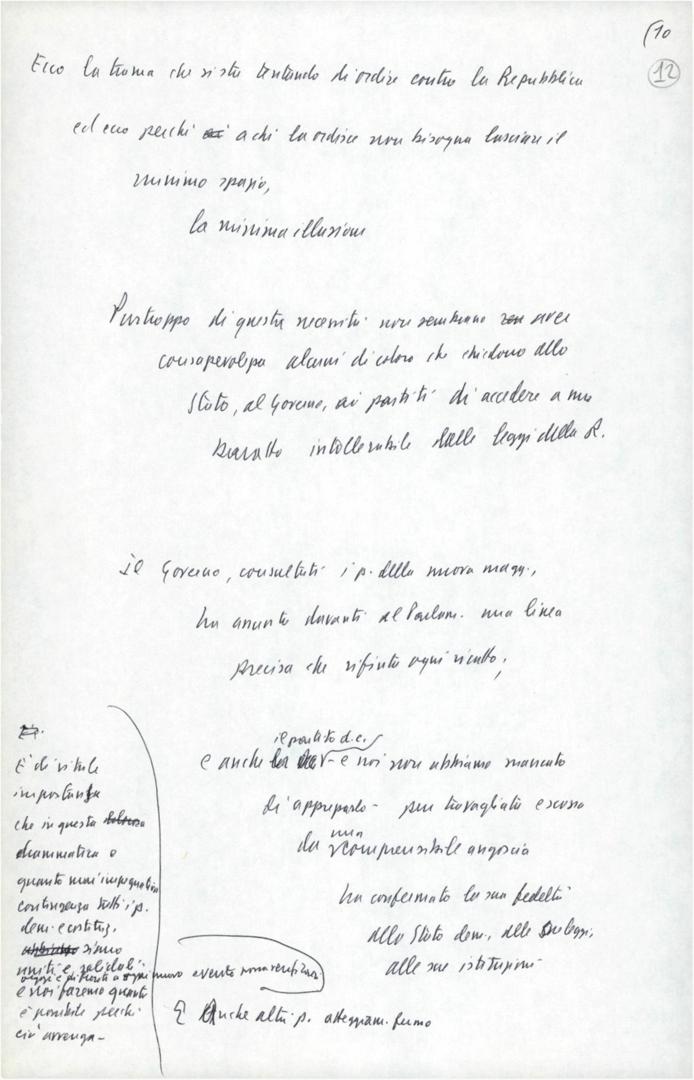 (10
12
Ecco la trama che si sta tentando di ordire contro la Repubblica
ed ecco perché a chi la ordisce non bisogna lasciare il
minimo spazio,
la minima illusione
Purtroppo di questa necessità non sembrano aver
consapevolezza alcuni di coloro che chiedono allo
Stato, al Governo, ai partiti di accedere a un
baratto intollerabile dalle leggi della R.
il Governo, consultati i p. della nuova magg.,
ha assunto davanti al Parlam. una linea
precisa che rifiuta ogni ricatto;
il partito d.c.
e anche la - e noi non abbiamo mancato
di apprezzarlo - pur travagliato e scosso
da una comprensibile angoscia
ha confermato la sua fedeltà
allo Stato dem., alle sue leggi,
alle sue istituzioni
E Anche altri p. atteggiam. fermo
È di vitale
importanza
che in questa dolorosa
drammatica e
quanto mai impegnativa
contingenza tutti i p.
dem. e costituz.
siano
uniti e solidali
oggi e di fronte a ogni nuovo evento
e noi faremo quanto
è possibile perché
ciò avvenga -